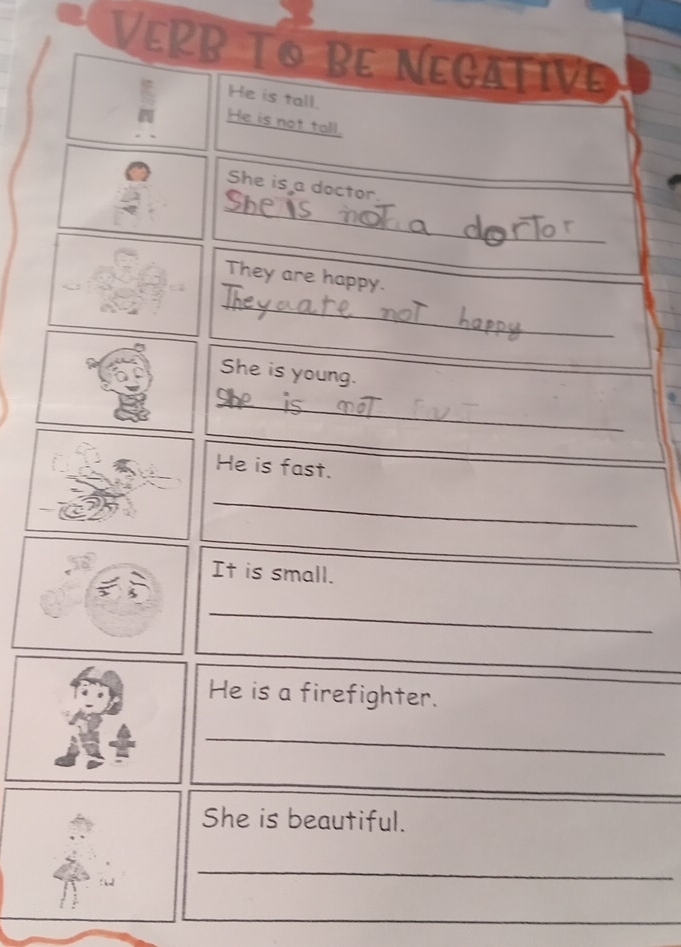 VERB TO BE NEGATIVE
He is tall.
He is not tall.
She is a doctor.
She is not a dortor
They are happy.
They aare not happy
She is young.
She is not
He is fast.
It is small.
He is a firefighter.
She is beautiful.